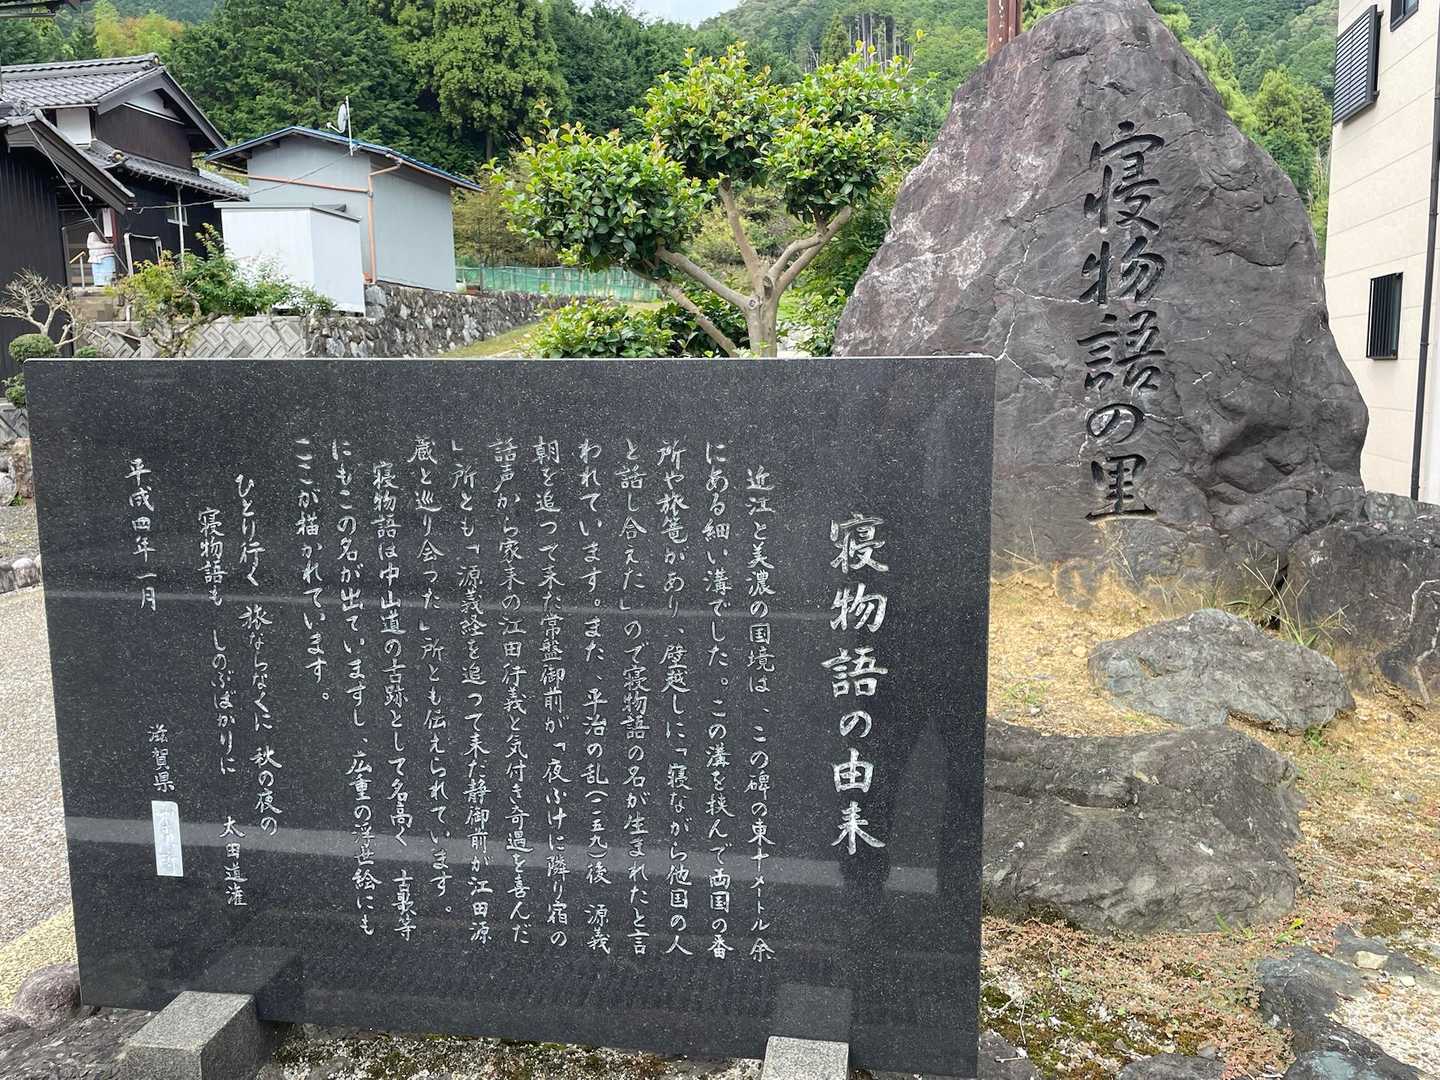 寝物語の里
寝物語の由来
近江と美濃の国境は、この碑の東十メートル余
にある細い溝でした。この溝を挟んで両国の番
所や旅篭があり、壁越しに「寝ながら他国の人
と話し合えた」ので寝物語の名が生まれたと言
われています。また、平治の乱(一一五九)後 源義
朝を追って来た常盤御前が「夜ふけに隣り宿の
話声から家来の江田行義と気付き奇遇を喜んだ
」所とも「源義経を追って来た静御前が江田源
蔵と巡り会った」所とも伝えられています。
寝物語は中山道の古跡として名高く 古歌等
にもこの名が出ていますし、広重の浮世絵にも
ここが描かれています。
ひとり行く 旅ならなくに 秋の夜の
寝物語も しのぶばかりに 太田道灌
平成四年一月
滋賀県